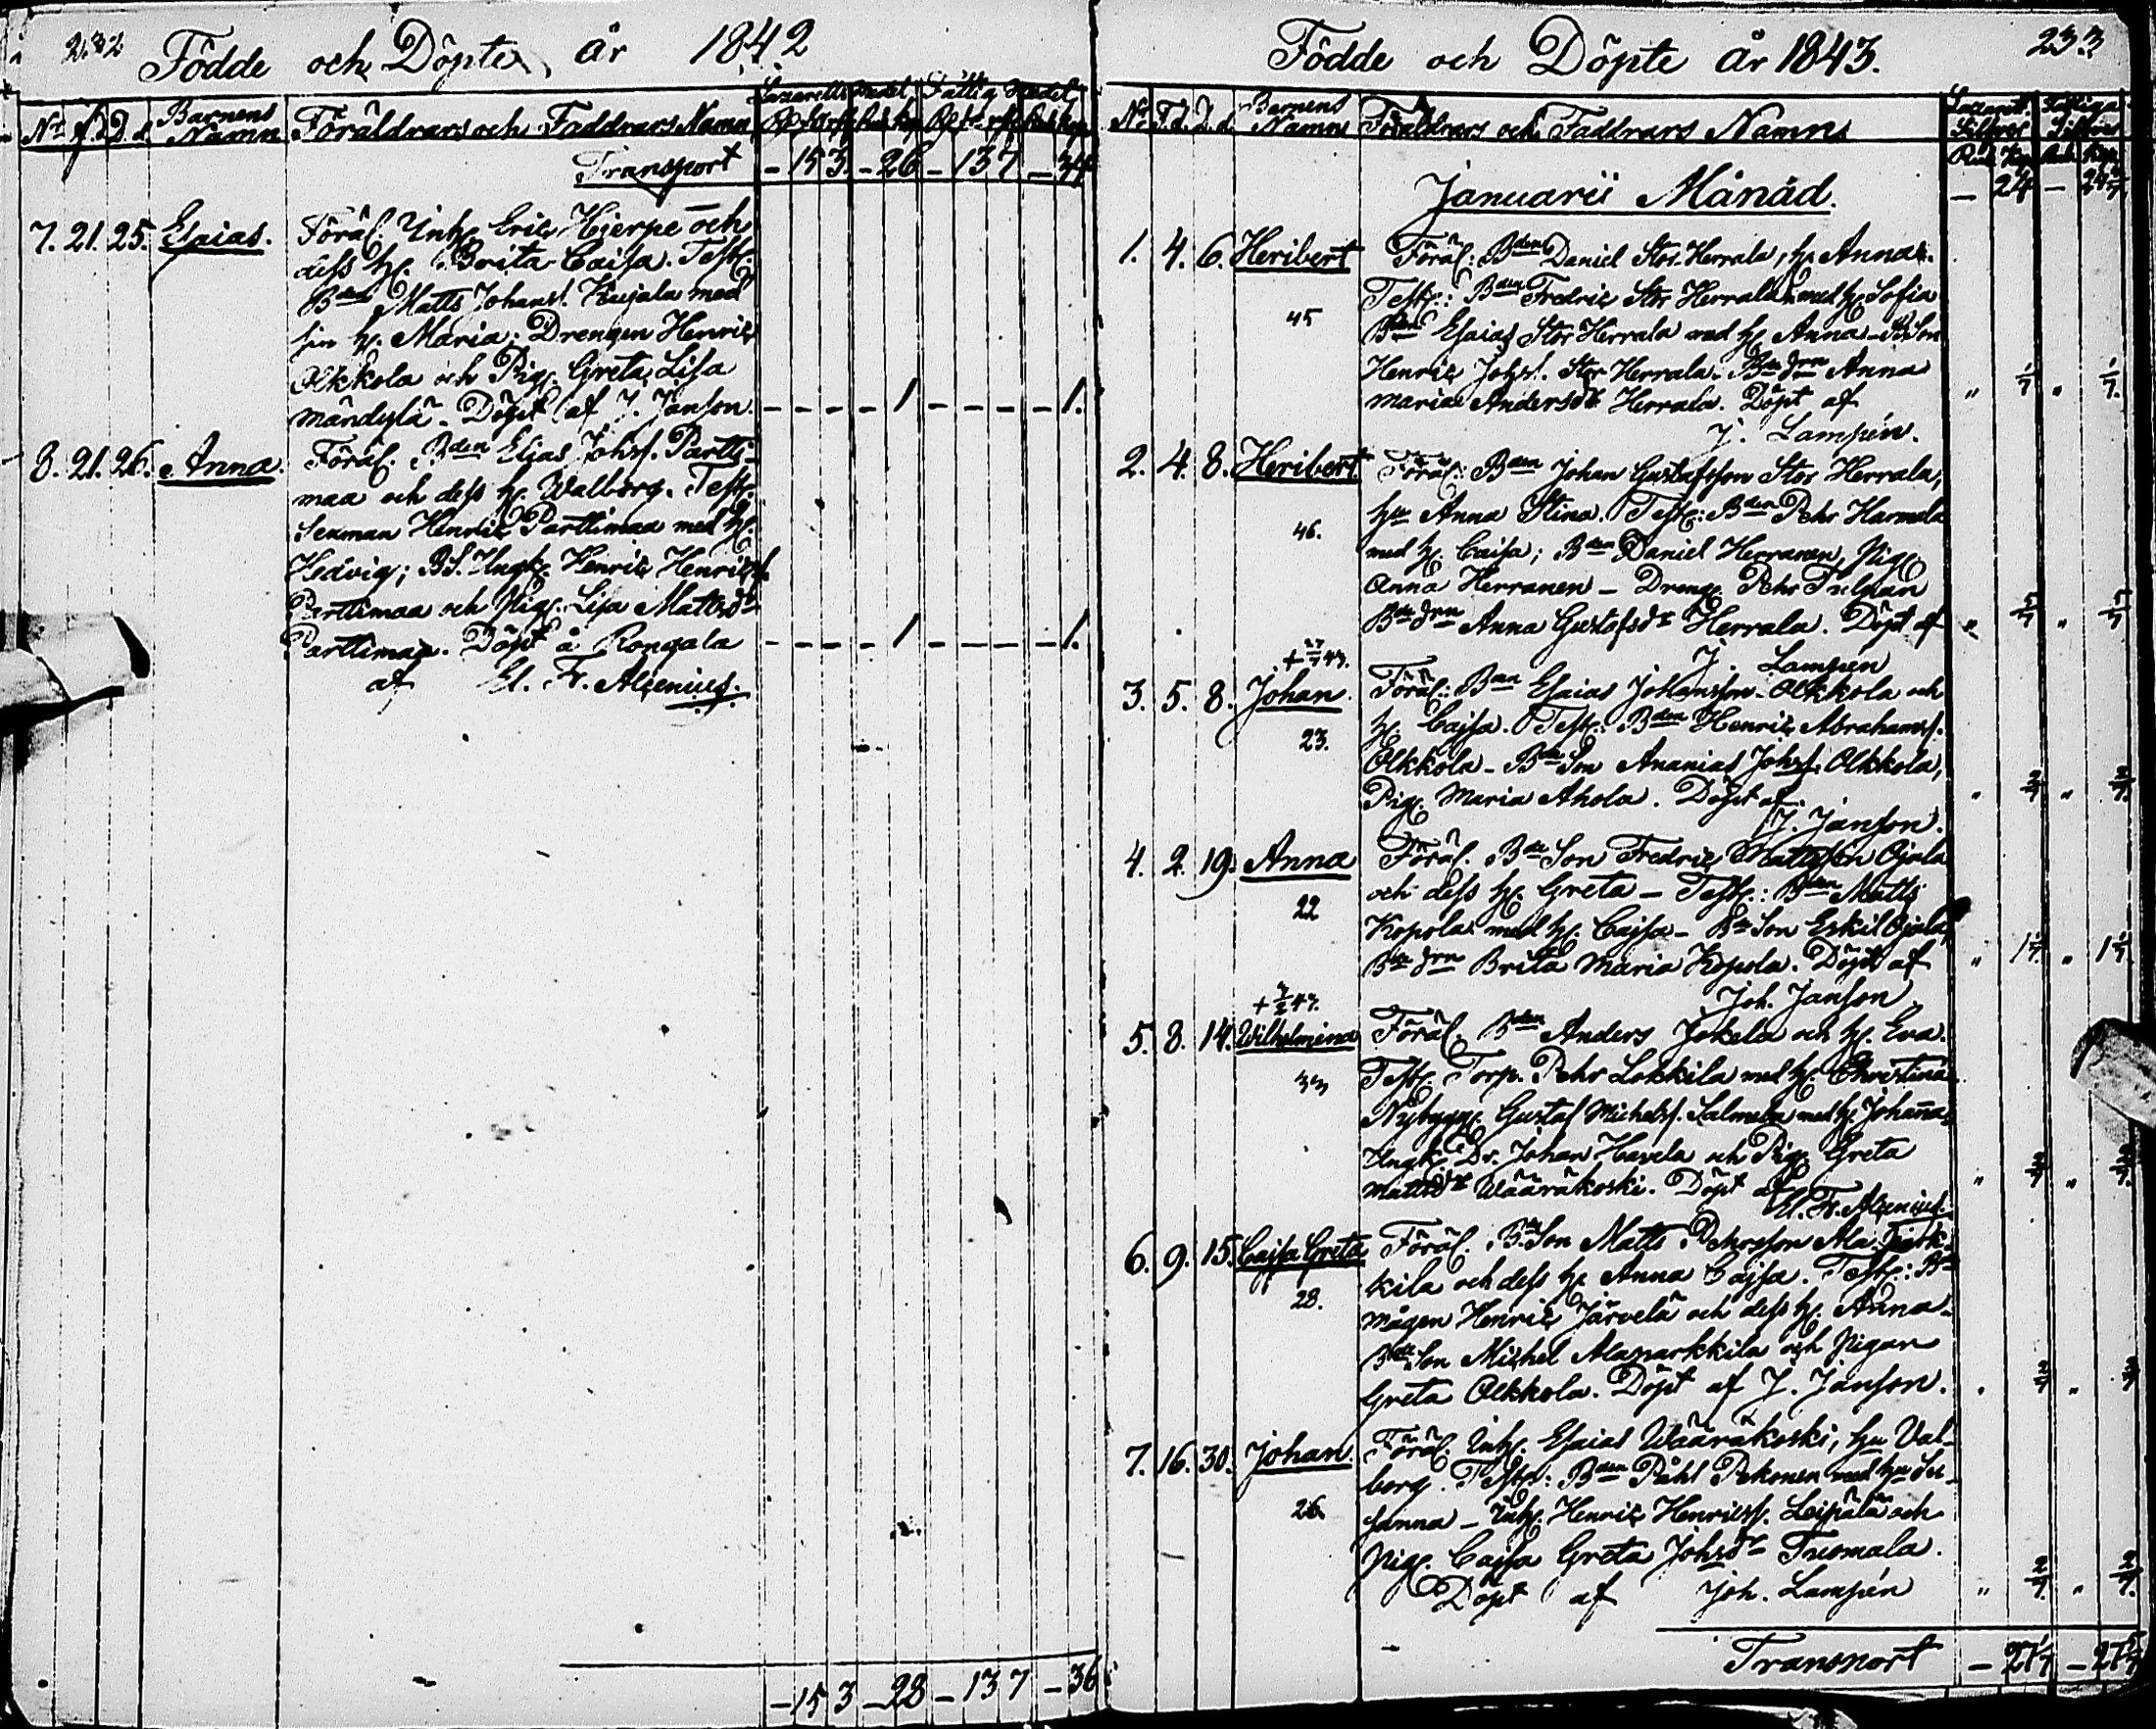 232 Födde och Döpte år 1842
No f.d. D.d. Barnens Namn Föräldrars och Faddrars Namn
Transport - 153 - 26 - 137 - 34
7. 21. 25. Esaias. Föräl. Inh. Eric Hierpe och
dess h. Brita Caisa. Test.
Bden Matts Johans. Kujala med
sin h. Maria; Drengen Henric
Olkkola och Pig. Greta Lisa
Mändylä. Döpt af J. Janson. - - - - 1 - - - - 1.
8. 21. 26. Anna. Föräl. Bden Elias Johs. Partti-
maa och dess h. Walborg. Test.
Sexman Henric Parttimaa med h.
Hedvig; BS. Ungk. Henric Henrics.
Parttimaa och Pig. Lisa Mattsdr
Parttimaa. Döpt å - - - - 1 - - - - 1.
af El. Fr. Alcenius.
- 153 - 28 - 137 - 36
Födde och Döpte år 1843. 233
No F.d. D.d. Barnens Namn Föräldrars och Faddrars Namn
Rub. Kop. Rub. Kop.
Januarii Månad.
1. 4. 6. Heribert Föräl: Bden Daniel Stor-Herrala, h. Anna.
Test.: Bden Fredric Stor Herrala med h. Sofia
45
Bden Esaias Stor Herrala med h. Anna
Henric Johs. Stor Herrala. Bdedrn Anna
Maria Andersdr Herrala. Döpt af
J. Lampén.
2. 4. 8. Heribert Föräl: Bden Johan Gustafsson Stor Herrala,
hu Anna Stina. Test: Bden Pehr Harmala
46.
med h. Caisa; Bden Daniel Herranen, Pig.
Anna Herranen - Dreng. Pehr
Bdedrn Anna Gustafsdr Herrala. Döpt af
J. Lampén
3. 5. 8. Johan. Föräl: Bden Esaias Johansson Olkkola och
h. Cajsa. Test: Bden Henric Abrahams.
23.
Olkkola - Bde Son Ananias Johs. Olkkola,
Pig. Maria Ahola. Döpt af
J. Janson.
4. 2. 19. Anna Föräl. Bde Son Fredric Mattsson Ojala
och dess h. Greta - Test: Bden Matts
22
Kopola med h. Cajsa - Bde Son Eskil Ojala,
Bdedrn Brita Maria Kopola. Döpt af
Joh. Janson
5. 8. 14. Wilhelmina Föräl. Bden Anders Jokela och h. Eva.
33
Test. Torp. Pehr Lokkila med h. Christina
Nybygg. Gustaf Michels. Salmela med h. Johanna
Ungk. Dr. Johan Havela och Pig. Greta
Mattsdr Wääräkoski. Döpt af
El. Fr. Alcenius.
6. 9. 15. Cajsa Greta Föräl. Bde Son Matts Pehrsson Ala Park-
kila och dess h. Anna Cajsa. Test: Bde
28.
mågen Henric Järvelä och dess h. Anna
Bde Son Michel Alaparkkila och Pigan
Greta Olkkola. Döpt af J. Janson.
7. 16. 30. Johan. Föräl. Inh. Esaias Wäärakoski, hu Val-
borg. Test: Bden Påhl Pekonen med hu Su-
26.
sanna - Inh. Henric Henricss. Leipälä och
Pig. Cajsa Greta Johsdr Tuomala.
Döpt af Joh. Lampén
Transport